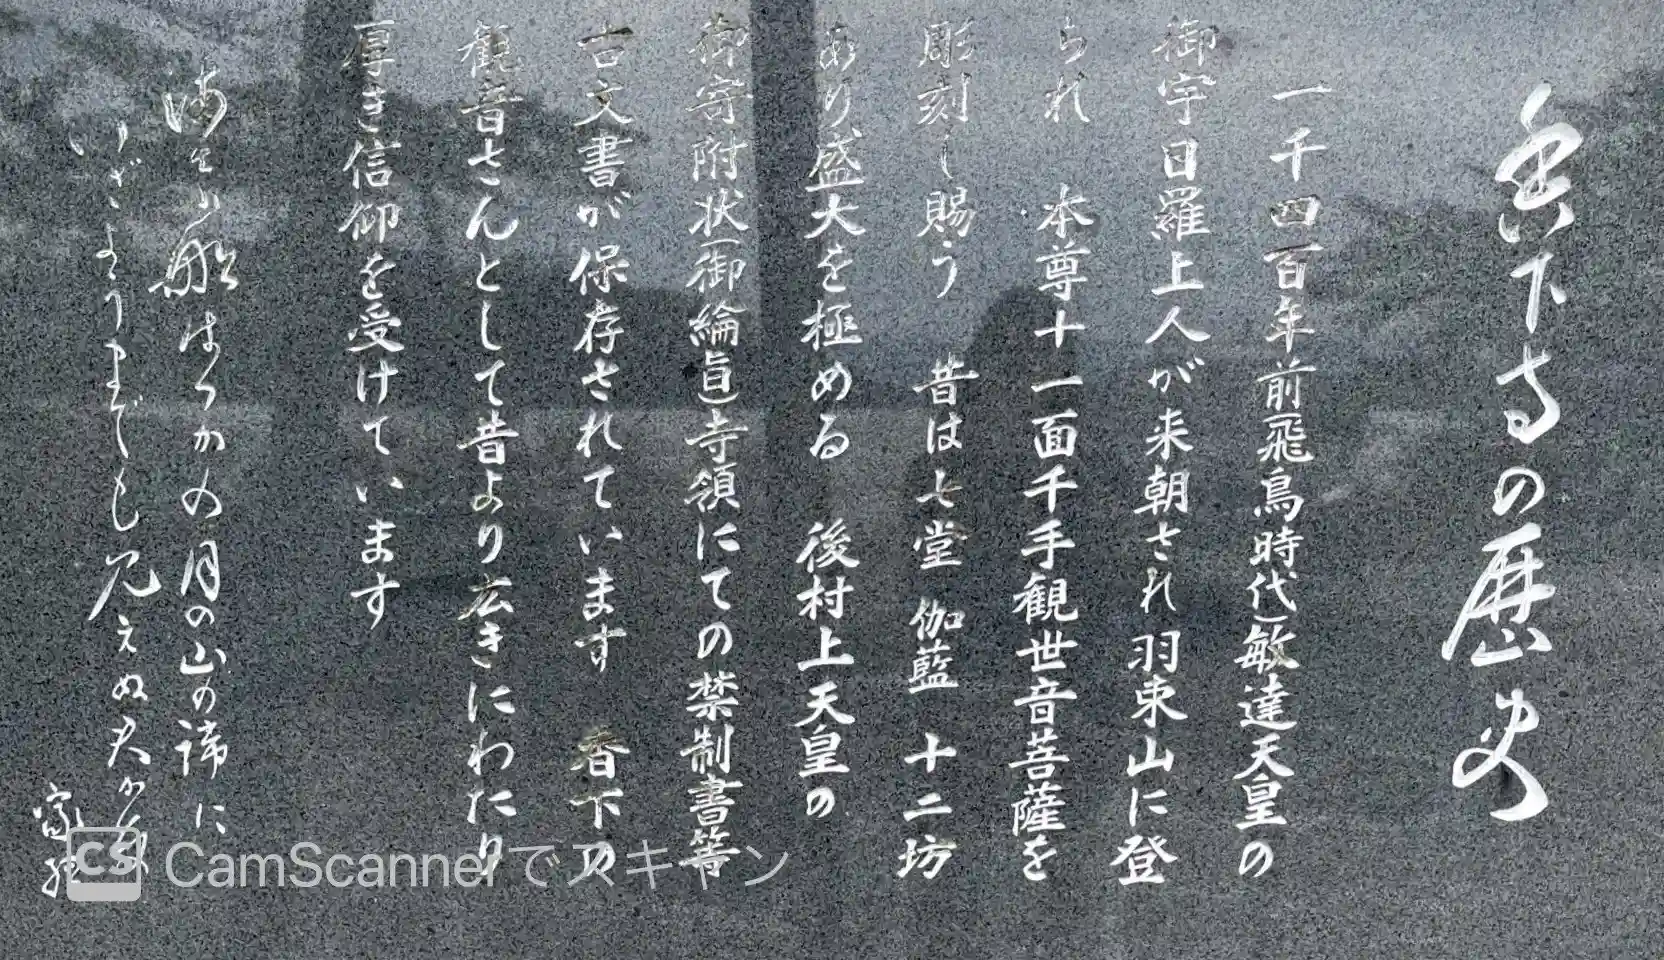 香下寺の歴史
一千四百年前(飛鳥時代)敏達天皇の
御宇日羅上人が来朝され羽束山に登
られ 本尊十一面千手観世音菩薩を
彫刻し賜う 昔は七堂 伽藍 十二坊
あり盛大を極める 後村上天皇の
御寄附状(御綸旨)寺領にての禁制書等
古文書が保存されています 香下の
観音さんとして昔より広きにわたり
厚き信仰を受けています
船はつかの月の山の端に
いざようまでも見えぬ君か
CamScannerでスキャン